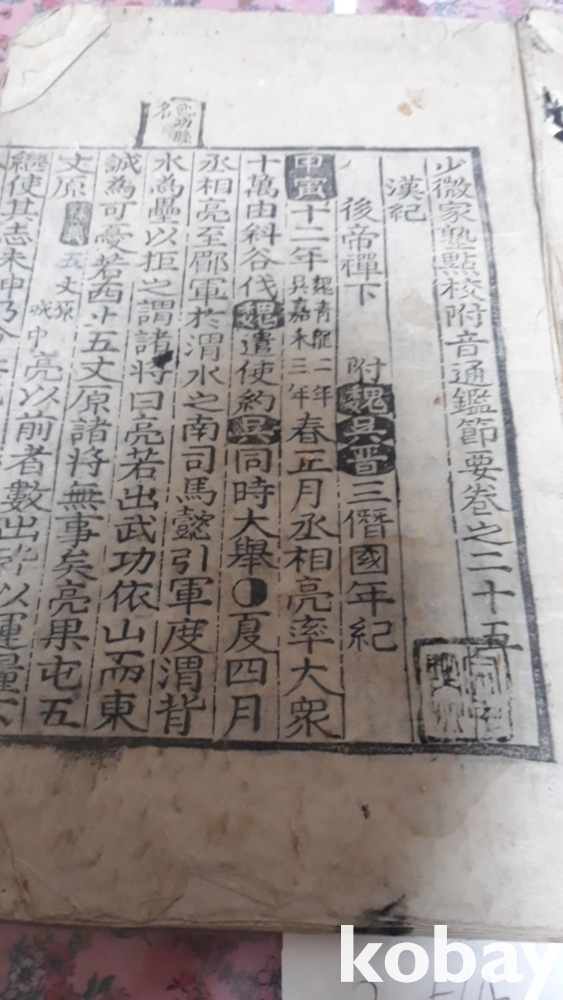 少微家塾點校附音通鑑節要卷之二十五
漢紀
後帝禪下 附魏吳晉三僭國年紀
甲寅十二年魏青龍二年吳嘉禾三年春正月丞相亮率大衆
十萬由斜谷伐魏遣使約吳同時大擧◑夏四月
丞相亮至郿軍於渭水之南司馬懿引軍度渭背
水爲壘以拒之謂諸將曰亮若出武功依山而東
誠爲可憂若西上五丈原諸將無事矣亮果屯五
丈原 五丈原 亮以前者數出皆以運糧不
繼使其志未申乃分
武功縣名
kobay